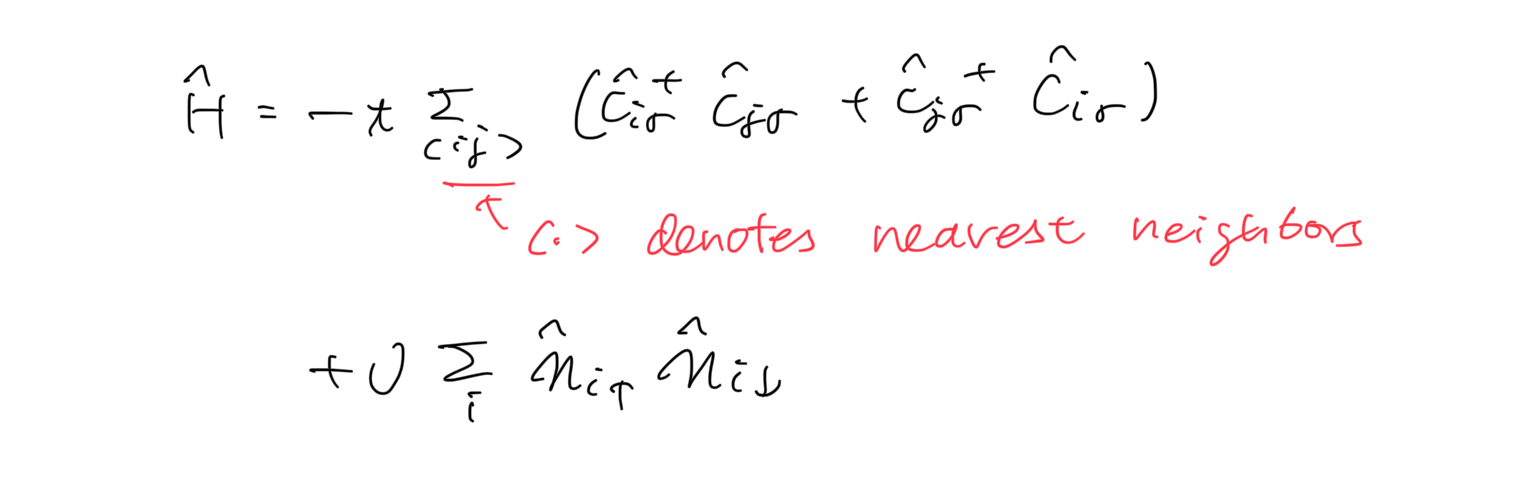 Ĥ = -t Σ_{<ij>} (ĉ_{iσ}^+ ĉ_{jσ} + ĉ_{jσ}^+ ĉ_{iσ})
↑ <.> denotes nearest neighbors
+ U Σ_i n̂_{i↑} n̂_{i↓}